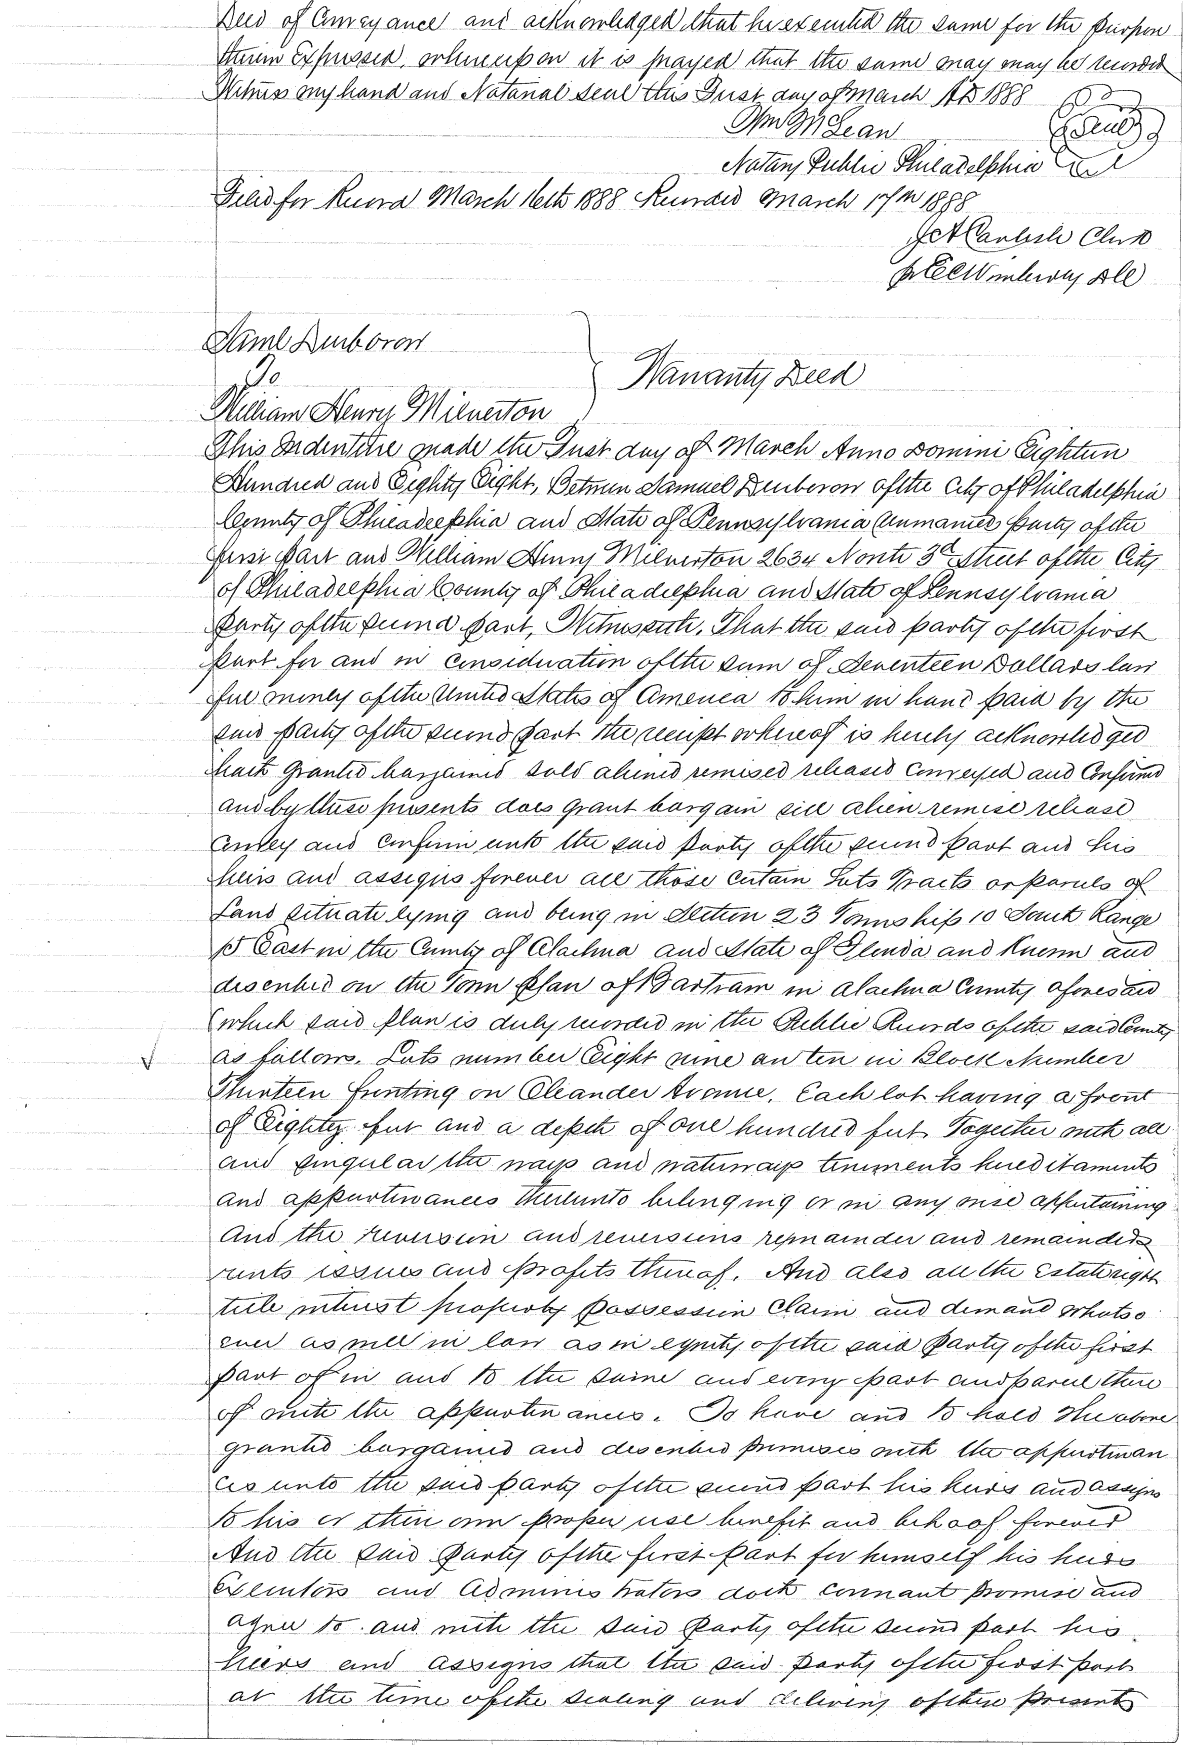 Deed of Conveyance and acknowledged that he executed the same for the purposes
therein Expressed, whereupon it is prayed that the same may may be recorded
Witness my hand and Notarial seal this First day of March AD 1888
Wm McLean
Notary Public Philadelphia
Filed for Record March 16th 1888 Recorded March 17th 1888
Clerk
Saml
To
Warranty Deed
William Henry Milverton
This Indenture made the First day of March Anno Domini Eighteen
Hundred and Eighty Eight, Between Samuel of the City of Philadelphia
County of Philadelphia and State of Pennsylvania (unmarried) Party of the
first Part and William Henry Milverton 2634 North 3d Street of the City
of Philadelphia County of Philadelphia and State of Pennsylvania
Party of the second part, Witnesseth, That the said party of the first
Part for and in consideration of the sum of Seventeen Dollars law
ful money of the United States of America to him in hand paid by the
said Party of the second Part the receipt whereof is hereby acknowledged
hath Granted bargained sold aliened remised released conveyed and Confirmed
and by these presents does grant bargain sell alien remise release
convey and confirm unto the said Party of the second Part and his
heirs and assigns forever all those certain Lots Tracts or parcels of
Land situate lying and being in Section 23 Township 10 South Range
East in the County of Alachua and State of Florida and Known and
described on the Town Plan of Bartram in Alachua County aforesaid
(which said Plan is duly recorded in the Public Records of the said County
as follows. Lots number Eight nine an ten in Block Number
Thirteen fronting on Oleander Avenue. Each lot having a front
of Eighty feet and a depth of one hundred feet Together with all
and singular the ways and waterways tenements hereditaments
and appurtenances thereunto belonging or in any wise appertaining
And the reversion and reversions remainder and remainders
rents issues and profits thereof. And also all the Estate right
title interest property Possession Claim and demand whatso
ever as well in law as in equity of the said Party of the first
part of in and to the same and every part and parcel there
of with the appurtenances. To have and to hold the above
granted bargained and described premises with the appurtenan
ces unto the said party of the second part his heirs and assigns
to his or their own proper use benefit and behoof forever
And the said Party of the first Part for himself his heirs
Executors and Administrators doth covenant promise and
agree to and with the said Party of the second part his
heirs and assigns that the said party of the first part
at the time of the sealing and delivery of these presents